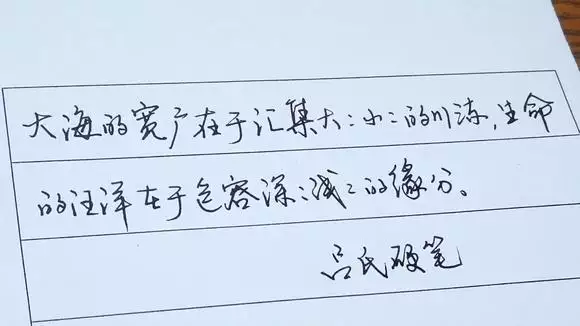 大海的宽广在于汇集大:小:的川流,生命
的汪洋在于包容深:浅:的缘分。
吕氏硬笔